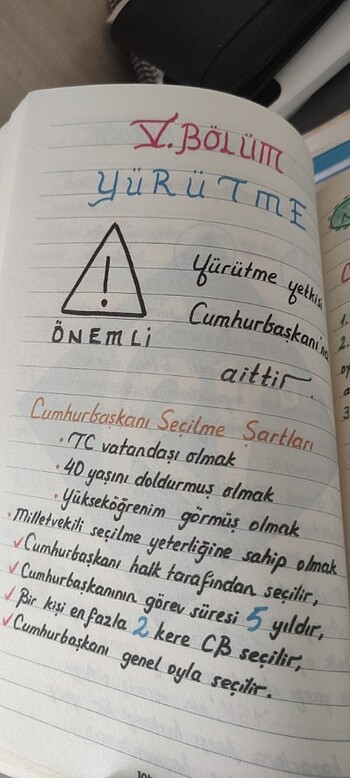 V. BÖLÜM
YÜRÜTME
ÖNEMLİ
Yürütme yetkisi
Cumhurbaşkanı'na
aittir.
Cumhurbaşkanı Seçilme Şartları
• TC vatandaşı olmak
• 40 yaşını doldurmuş olmak
• Yükseköğrenim görmüş olmak
• Milletvekili seçilme yeterliğine sahip olmak
✓ Cumhurbaşkanı halk tarafından seçilir,
✓ Cumhurbaşkanının görev süresi 5 yıldır,
✓ Bir kişi en fazla 2 kere CB seçilir,
✓ Cumhurbaşkanı genel oyla seçilir.
1.
2.
3